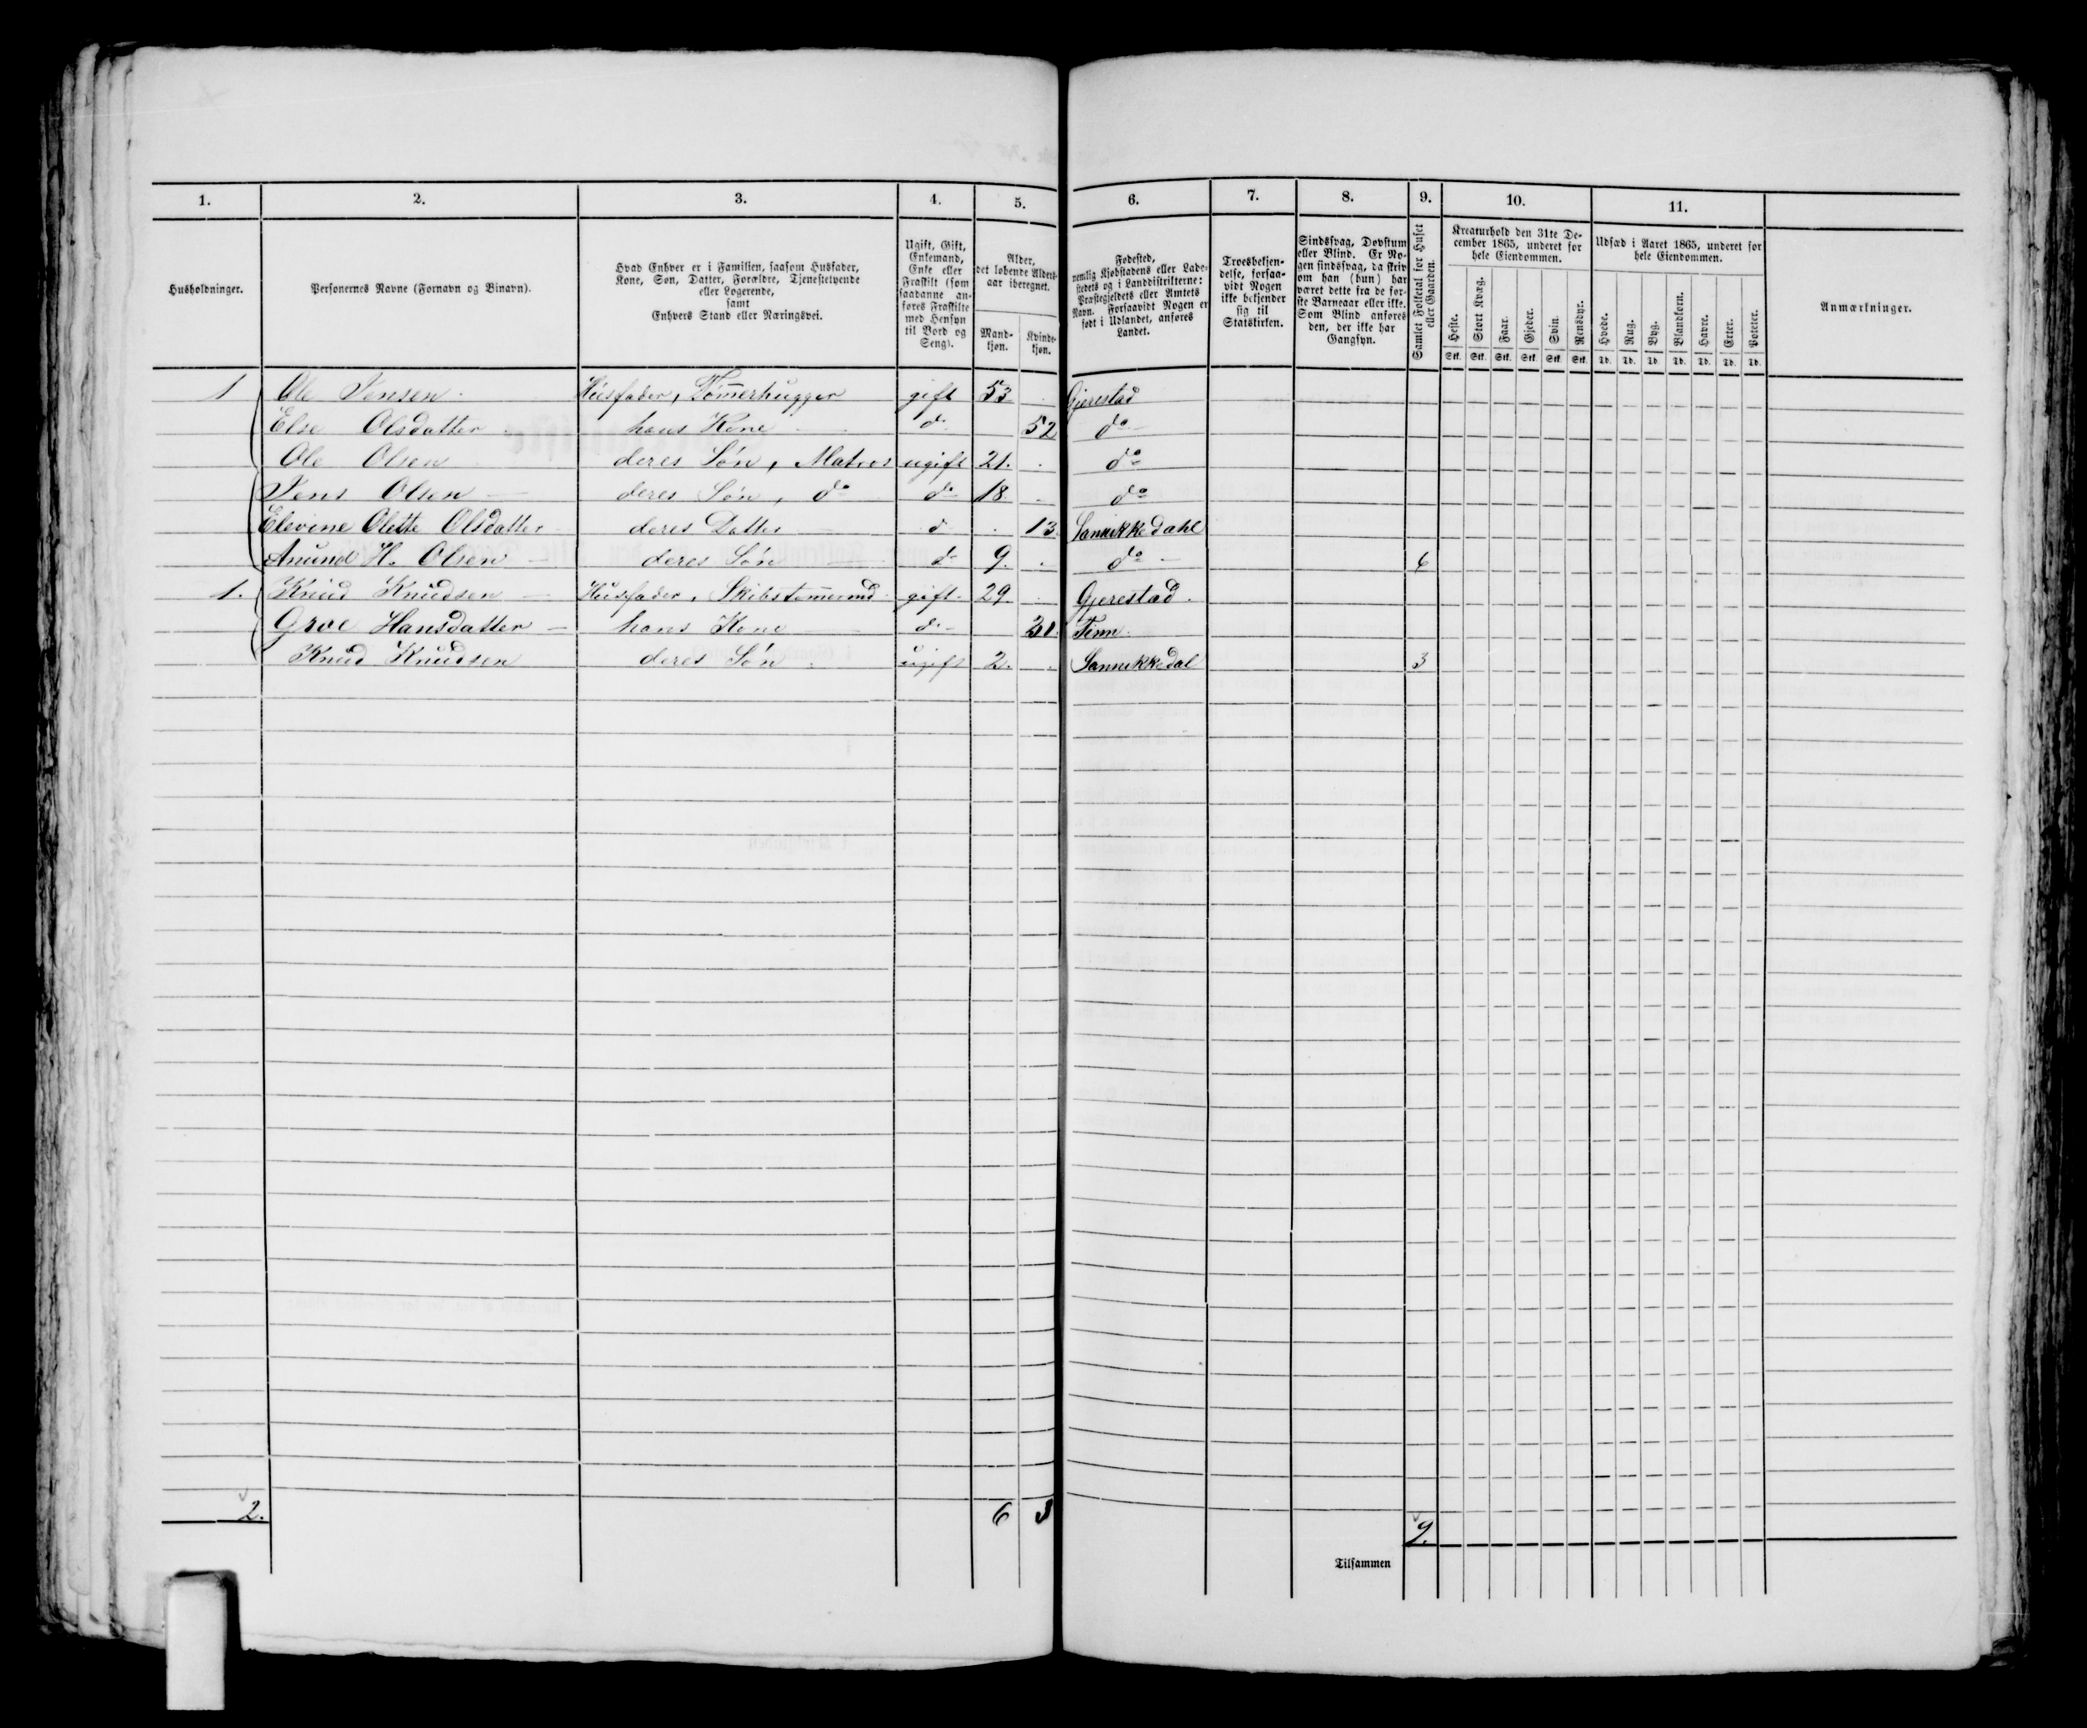 1. 2. 3. 4. 5. 6. 7. 8. 9. 10. 11.
Husholdninger.
Personernes Navne (Fornavn og Binavn).
Hvad Enhver er i Familien, saasom Husfader,
Kone, Søn, Datter, Forældre, Tjenestetyende
eller Logerende,
samt
Enhvers Stand eller Næringsvei.
Ugift, Gift,
Enkemand,
Enke eller
Fraskilt (som
saadanne an-
føres Fraskilte
med Hensyn
til Bord og
Seng).
Alder,
det løbende Alders-
aar iberegnet.
Mand-
kjøn.
Kvinde-
kjøn.
Fødested,
nemlig Kjøbstadens eller Lade-
stedets og i Landdistrikterne:
Præstegjeldets eller Amtets
Navn. Forsaavidt Nogen er
født i Udlandet, anføres
Landet.
Troesbekjen-
delse, forsaa-
vidt Nogen
ikke bekjender
sig til
Statskirken.
Sindssvag, Døvstum
eller Blind. Er No-
gen sindssvag, da skriv
om han (hun) har
været dette fra de før-
ste Barneaar eller ikke.
Som Blind anføres
den, der ikke har
Gangsyn.
Samlet Folketal for Huset
eller Gaarden.
Kreaturhold den 31te De-
cember 1865, underet for
hele Eiendommen.
Heste. Stort Kvæg. Faar. Gjeder. Svin. Rensdyr.
Stk. Stk. Stk. Stk. Stk. Stk.
Udsæd i Aaret 1865, underet for
hele Eiendommen.
Hvede. Rug. Byg. Blandkorn. Havre. Erter. Poteter.
Td. Td. Td. Td. Td. Td. Td.
Anmærkninger.
1 Ole Jensen Husfader, Tømerhugger gift 53 Gjerestad
Else Olsdatter hans Kone do 52 do
Ole Olsen deres Søn, Matros ugift 21. do
Jens Olsen deres Søn, do do 18 do
Elevine Olette Olsdatter deres Datter do 13. Sannikkedahl
Anund H. Olsen deres Søn do 9. do 6
1. Knud Knudsen Husfader, Skibstømermd gift 29. Gjerestad.
Groe Hansdatter hans Kone do 31. Tinn.
Knud Knudsen deres Søn ugift 2. Sannikkedal 3
2. 6 3 9.
Tilsammen